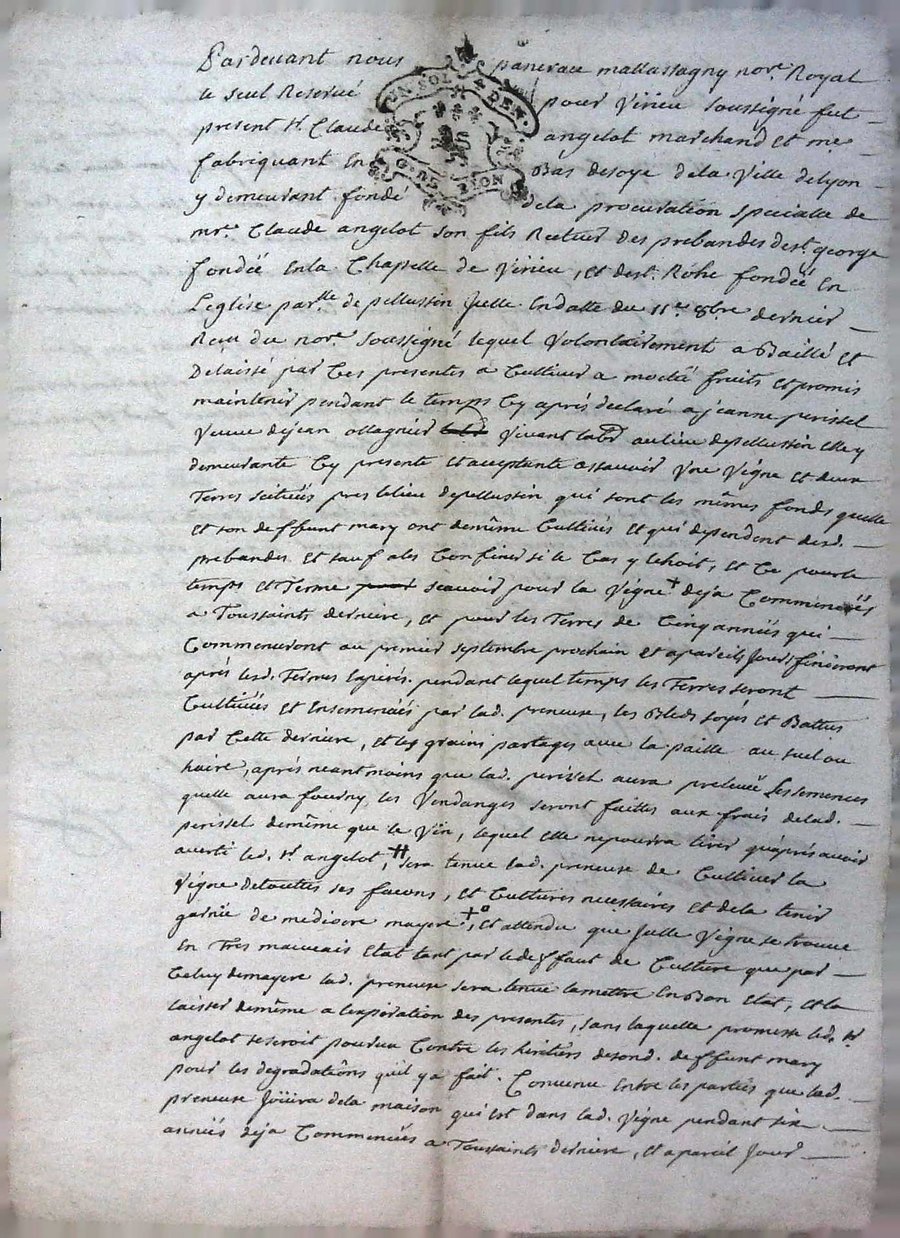 Pardevant nous pancrace mallassagny nore. Royal
le seul Reservé pour Virieu soussigné fut
present Sr. Claude angelot marchand et me
fabriquant En Bas desoye dela Ville delyon
y demeurant fondé dela procuration specialle de
mre. Claude angelot son fils Recteur des prebandes de st. george
fondée Enla Chapelle de Virieu, et de st. Roche fondée En
L'eglise parlle. de pellussin Jcelle Endatte du 11e. 8bre dernier
Receu du nore. soussigné lequel Volontairement a Baillé et
Delaissé par Ces presentes a Cultiver a moctié fruits et promis
maintenir pendant le temps Cy aprés declaré a jeanne perissel
Veuve dejean ollagnier Vivant labr aulieu depellussin Elley
demeurante Cy presente et acceptante assavoir Vne Vigne et deux
Terres scitüés pres lelieu depellussin qui sont les mêmes fonds quelle
et son deffunt mary ont demême Cultivés et qui dependent desd.
prebandes et sauf ales Confiner si le Cas y Echoit, et Ce pourle
temps et Terme pour scavoir pour la Vigne + deja Commencéés
a Toussaints derniere, et pour les Terres de Cinq annéés qui
Commenceront au premier septembre prochain et apareils Jours finiront
aprés lesd. Termes Expirés. pendant lequel temps les Terres seront
Cultivéés et Ensemencéés par lad. preneuse, les Bleds soyés et Battus
par Cette derniere, et les grains partagés avec la paille au suel ou
haire, aprés neantmoins que lad. perissel aura prelevé Les semences
quelle aura fourny les Vendanges seront faittes aux frais delad.
perissel demême que le Vin, lequel elle nepourra tirer qu'aprés avoir
averti led. Sr. angelot, # sera tenue lad. preneuse de Cultiver la
Vigne detoutes ses facons, et Cultures necessaires et dela tenir
garnie de mediocre mayere +°, et attendu que Jcelle Vigne se trouve
En Tres mauvais Etat tant par ledeffaut de Culture que par
Celuy demayere lad. preneuse sera tenue lamettre En Bon Etat, et la
laisser demême a lexpiration des presentes, sans laquelle promesse led. Sr.
angelot seseroit pourvu Contre les heritiers desond. deffunt mary
pour les degradations quil ya fait. Convenu Entre les parties que lad.
preneuse Joüira dela maison qui est dans lad. Vigne pendant six
annéés deja Commencéés a Toussaints derniere, et apareil Jour
UN SOL 4 DEN.
G. DE LYON